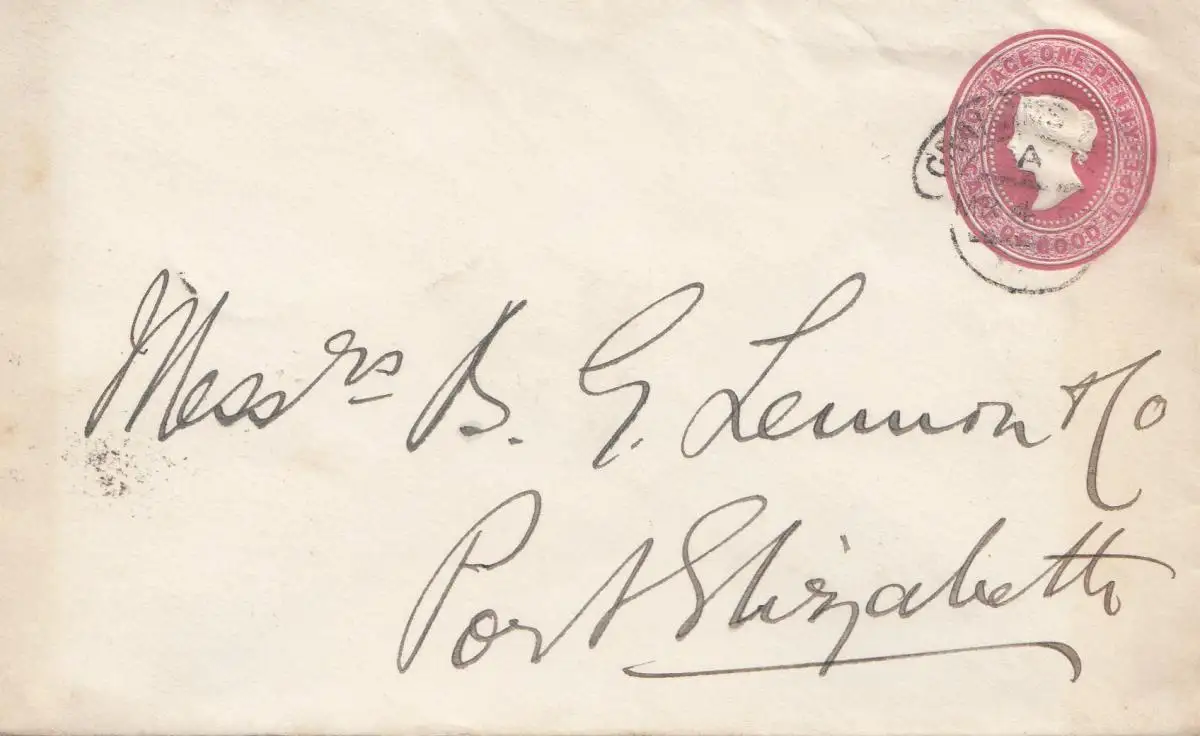 POSTAGE ONE PENNY
CAPE OF GOOD HOPE
A
Messrs B. G. Lennon & Co
Port Elizabeth